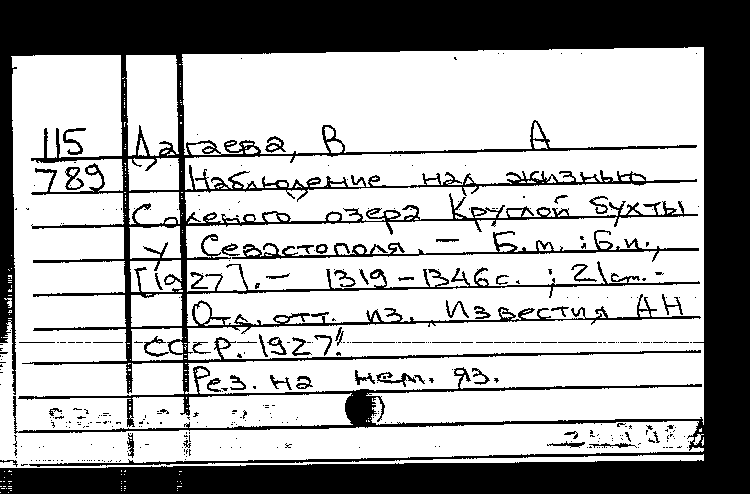 115 Дагаева, В А
789 Наблюдение над жизнью
Соленого озера Круглой бухты
у Севастополя. – Б.м. : Б.и.,
[1927]. – 1319–1346 с. ; 21 cm. -
Отд. отт. из. "Известия АН
СССР. 1927"
Рез. на нем. яз.